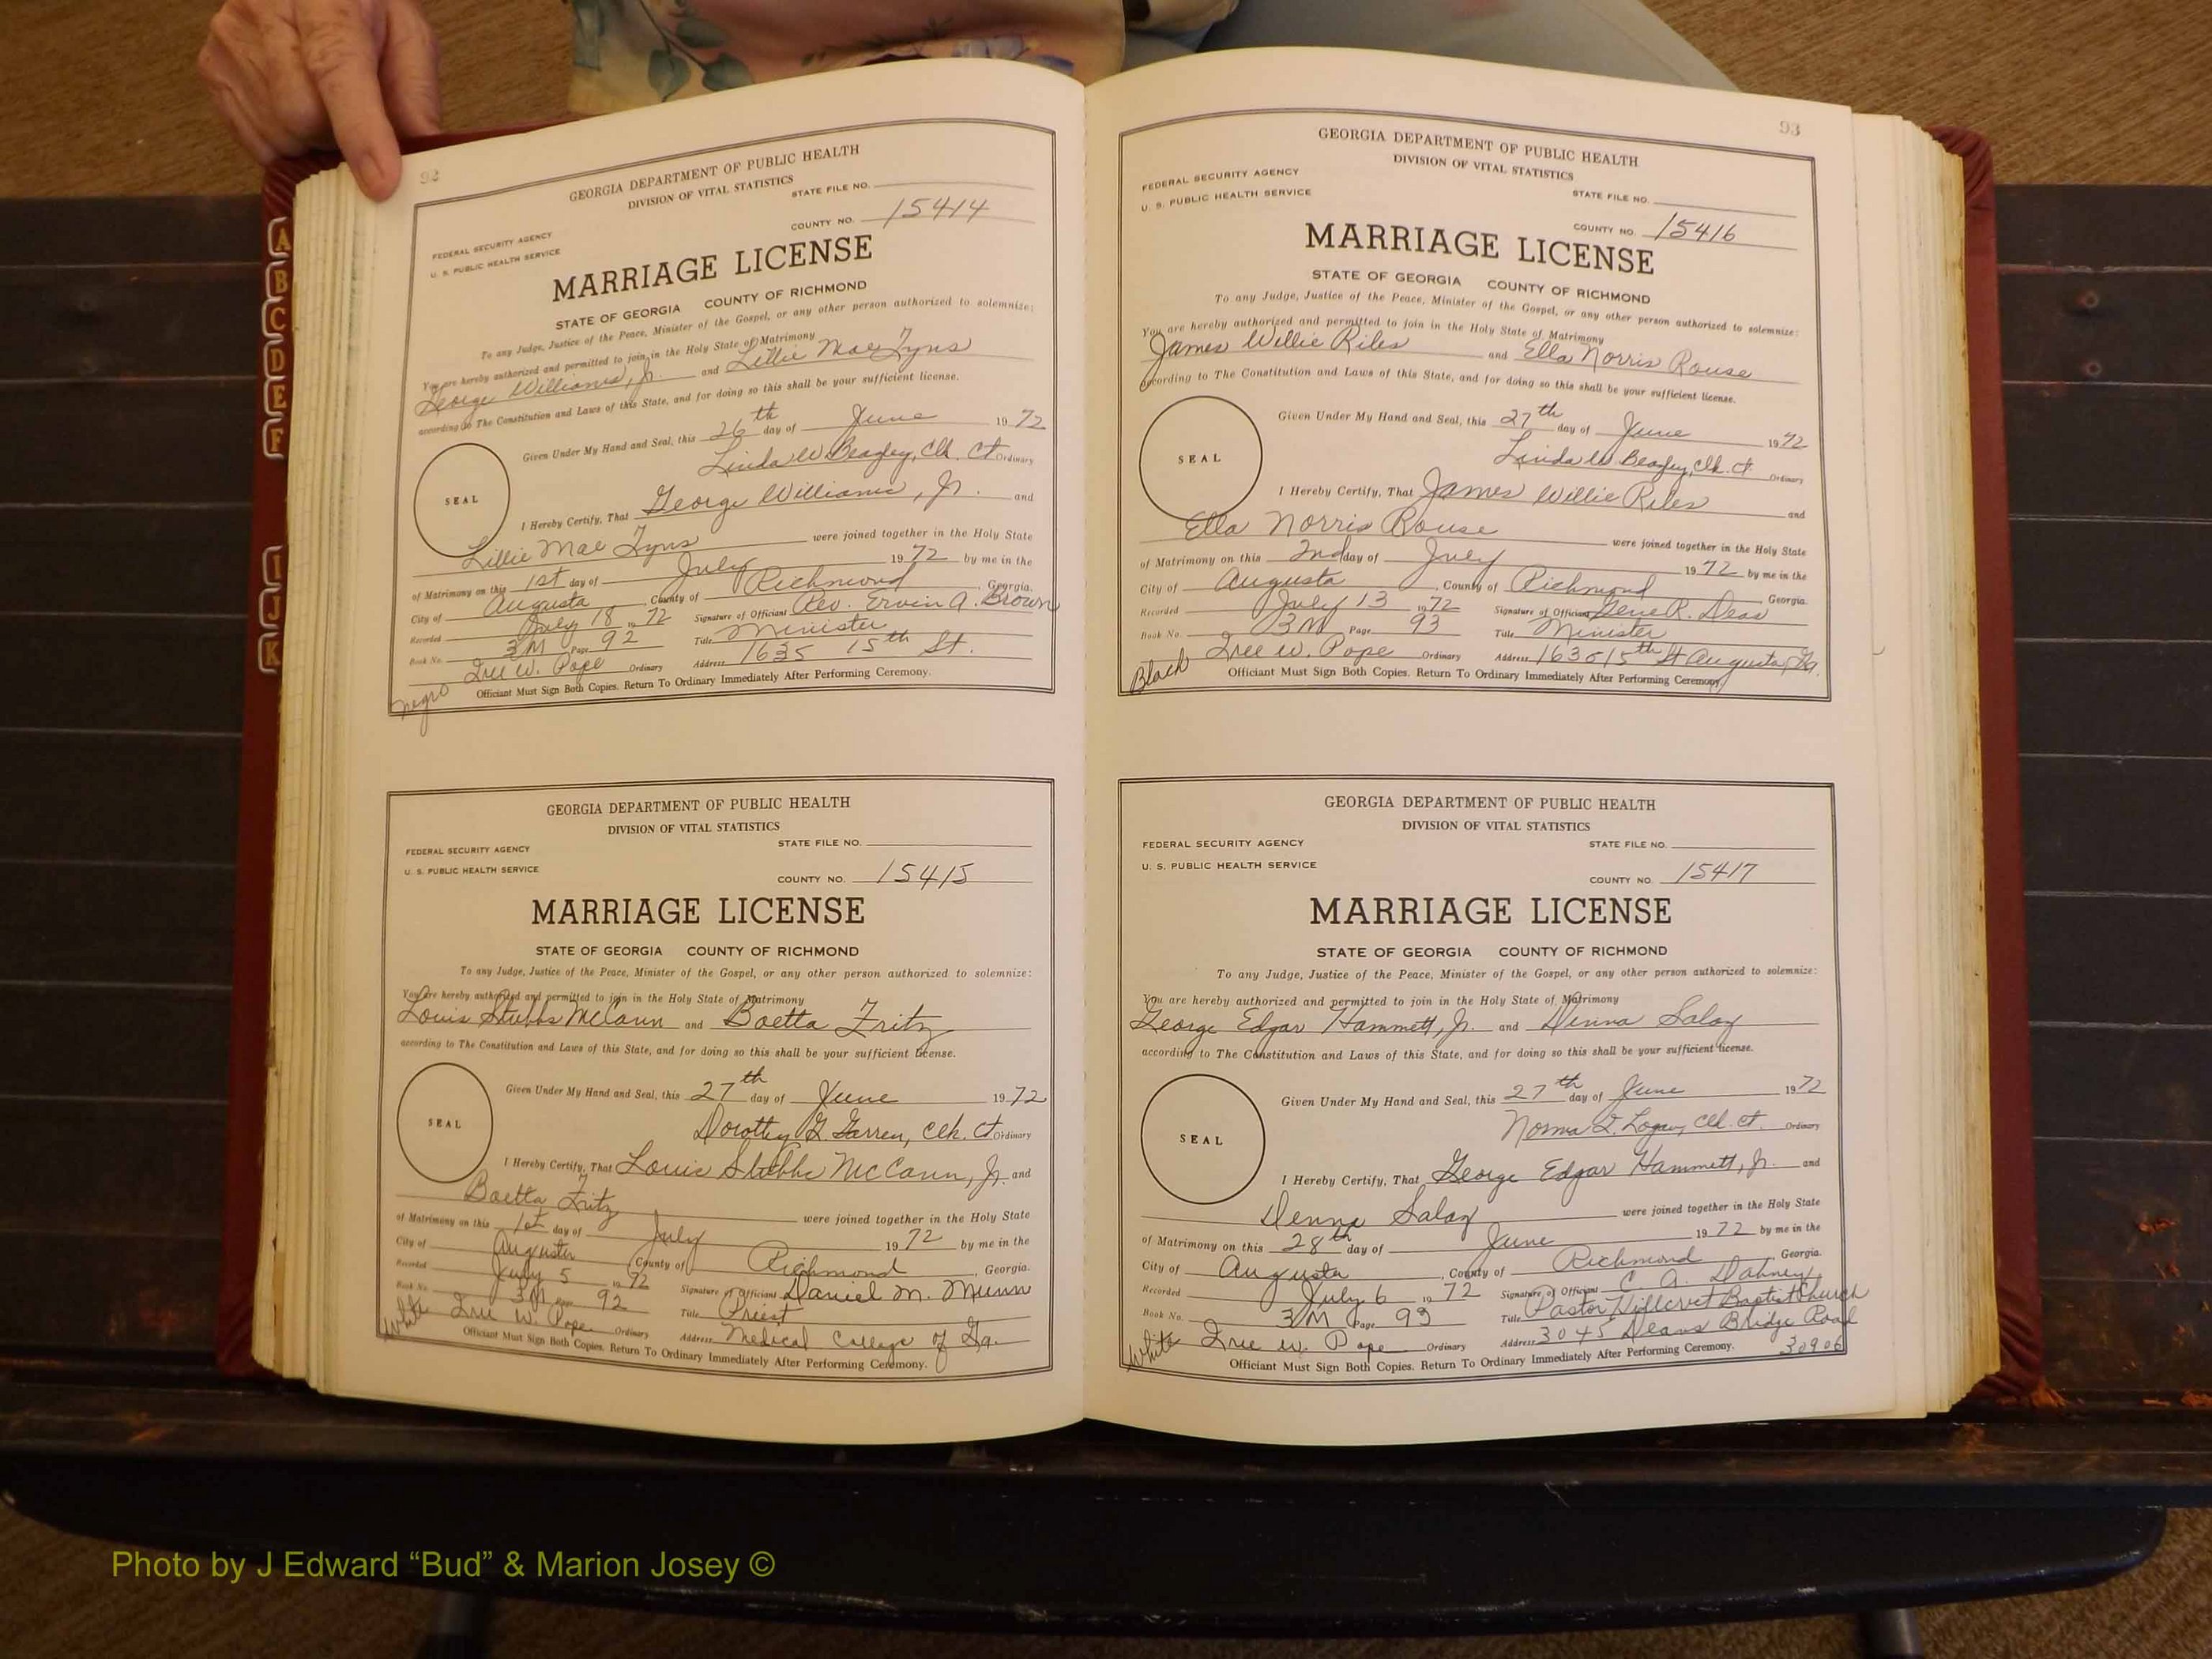 A
B
C
D
E
F
I
J
K
92
GEORGIA DEPARTMENT OF PUBLIC HEALTH
DIVISION OF VITAL STATISTICS
STATE FILE NO.
COUNTY NO. 15414
FEDERAL SECURITY AGENCY
U. S. PUBLIC HEALTH SERVICE
MARRIAGE LICENSE
STATE OF GEORGIA COUNTY OF RICHMOND
To any Judge, Justice of the Peace, Minister of the Gospel, or any other person authorized to solemnize:
You are hereby authorized and permitted to join in the Holy State of Matrimony
George Williams, Jr. and Lillie Mae Tyns
according to The Constitution and Laws of this State, and for doing so this shall be your sufficient license.
Given Under My Hand and Seal, this 26th day of June 1972
Linda W. Beazley, Clk. Ct. Ordinary
SEAL
I Hereby Certify, That George Williams, Jr. and
Lillie Mae Tyns were joined together in the Holy State
of Matrimony on this 1st day of July 1972 by me in the
City of Augusta, County of Richmond, Georgia.
Recorded July 18 1972 Signature of Officiant Rev. Ervin A. Brown
Book No. 3M Page 92 Title Minister
W. Pope Ordinary Address 1635 15th St.
Negro Officiant Must Sign Both Copies. Return To Ordinary Immediately After Performing Ceremony.
GEORGIA DEPARTMENT OF PUBLIC HEALTH
DIVISION OF VITAL STATISTICS
FEDERAL SECURITY AGENCY STATE FILE NO.
U. S. PUBLIC HEALTH SERVICE COUNTY NO. 15415
MARRIAGE LICENSE
STATE OF GEORGIA COUNTY OF RICHMOND
To any Judge, Justice of the Peace, Minister of the Gospel, or any other person authorized to solemnize:
You are hereby authorized and permitted to join in the Holy State of Matrimony
Louis Stubbs McCann and Baetta Fritz
according to The Constitution and Laws of this State, and for doing so this shall be your sufficient license.
Given Under My Hand and Seal, this 27th day of June 1972
Dorothy G. Garren, Clk. Ct. Ordinary
SEAL
I Hereby Certify, That Louis Stubbs McCann, Jr. and
Baetta Fritz were joined together in the Holy State
of Matrimony on this 1st day of July 1972 by me in the
City of Augusta County of Richmond, Georgia.
Recorded July 5 1972 Signature of Officiant Daniel M. Munn
Book No. 3M Page 92 Title Priest
White W. Pope Ordinary Address Medical College of Ga.
Officiant Must Sign Both Copies. Return To Ordinary Immediately After Performing Ceremony.
93
GEORGIA DEPARTMENT OF PUBLIC HEALTH
DIVISION OF VITAL STATISTICS
FEDERAL SECURITY AGENCY
U. S. PUBLIC HEALTH SERVICE
STATE FILE NO.
COUNTY NO. 15416
MARRIAGE LICENSE
STATE OF GEORGIA COUNTY OF RICHMOND
To any Judge, Justice of the Peace, Minister of the Gospel, or any other person authorized to solemnize:
You are hereby authorized and permitted to join in the Holy State of Matrimony
James Willie Riles and Ella Norris Rouse
according to The Constitution and Laws of this State, and for doing so this shall be your sufficient license.
Given Under My Hand and Seal, this 27th day of June 1972
Linda W. Beazley, Clk. Ct. Ordinary
SEAL
I Hereby Certify, That James Willie Riles and
Ella Norris Rouse were joined together in the Holy State
of Matrimony on this 2nd day of July 1972 by me in the
City of Augusta, County of Richmond Georgia.
Recorded July 13 1972 Signature of Officiant Gene R. Dead
Book No. 3M Page 93 Title Minister
Black W. Pope Ordinary Address 1630 15th St Augusta, Ga.
Officiant Must Sign Both Copies. Return To Ordinary Immediately After Performing Ceremony.
GEORGIA DEPARTMENT OF PUBLIC HEALTH
DIVISION OF VITAL STATISTICS
FEDERAL SECURITY AGENCY STATE FILE NO.
U. S. PUBLIC HEALTH SERVICE COUNTY NO. 15417
MARRIAGE LICENSE
STATE OF GEORGIA COUNTY OF RICHMOND
To any Judge, Justice of the Peace, Minister of the Gospel, or any other person authorized to solemnize:
You are hereby authorized and permitted to join in the Holy State of Matrimony
George Edgar Hammett, Jr. and Denna Salay
according to The Constitution and Laws of this State, and for doing so this shall be your sufficient license.
Given Under My Hand and Seal, this 27th day of June 1972
Norma Logan, Clk. Ct. Ordinary
SEAL
I Hereby Certify, That George Edgar Hammett, Jr. and
Denna Salay were joined together in the Holy State
of Matrimony on this 28th day of June 1972 by me in the
City of Augusta, County of Richmond, Georgia.
Recorded July 6 1972 Signature of Officiant C. A. Dahney
Book No. 3M Page 93 Title Pastor Hillcrest Baptist Church
White W. Pope Ordinary Address 3045 Deans Bridge Road
Officiant Must Sign Both Copies. Return To Ordinary Immediately After Performing Ceremony. 30906
Photo by J Edward “Bud” & Marion Josey ©